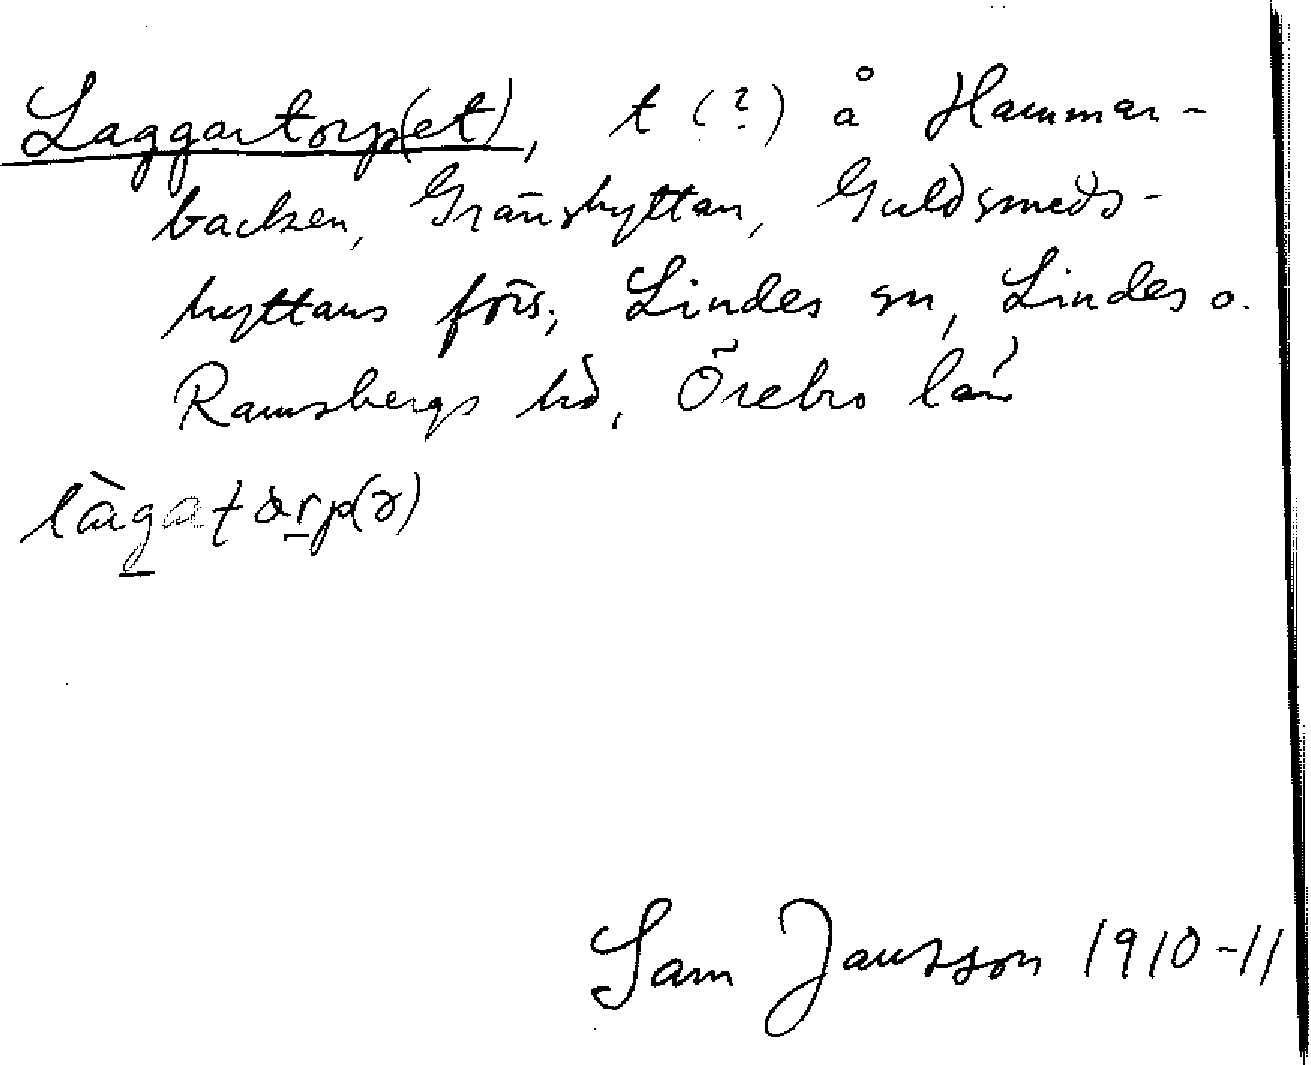 Laggartorp(et), t (?) å Hammar-
backen, Gränshyttan, Guldsmeds-
hyttans förs., Lindes sn, Lindes o.
Ramsbergs hd, Örebro län
làgatårp(ə)
Sam Jansson 1910-11